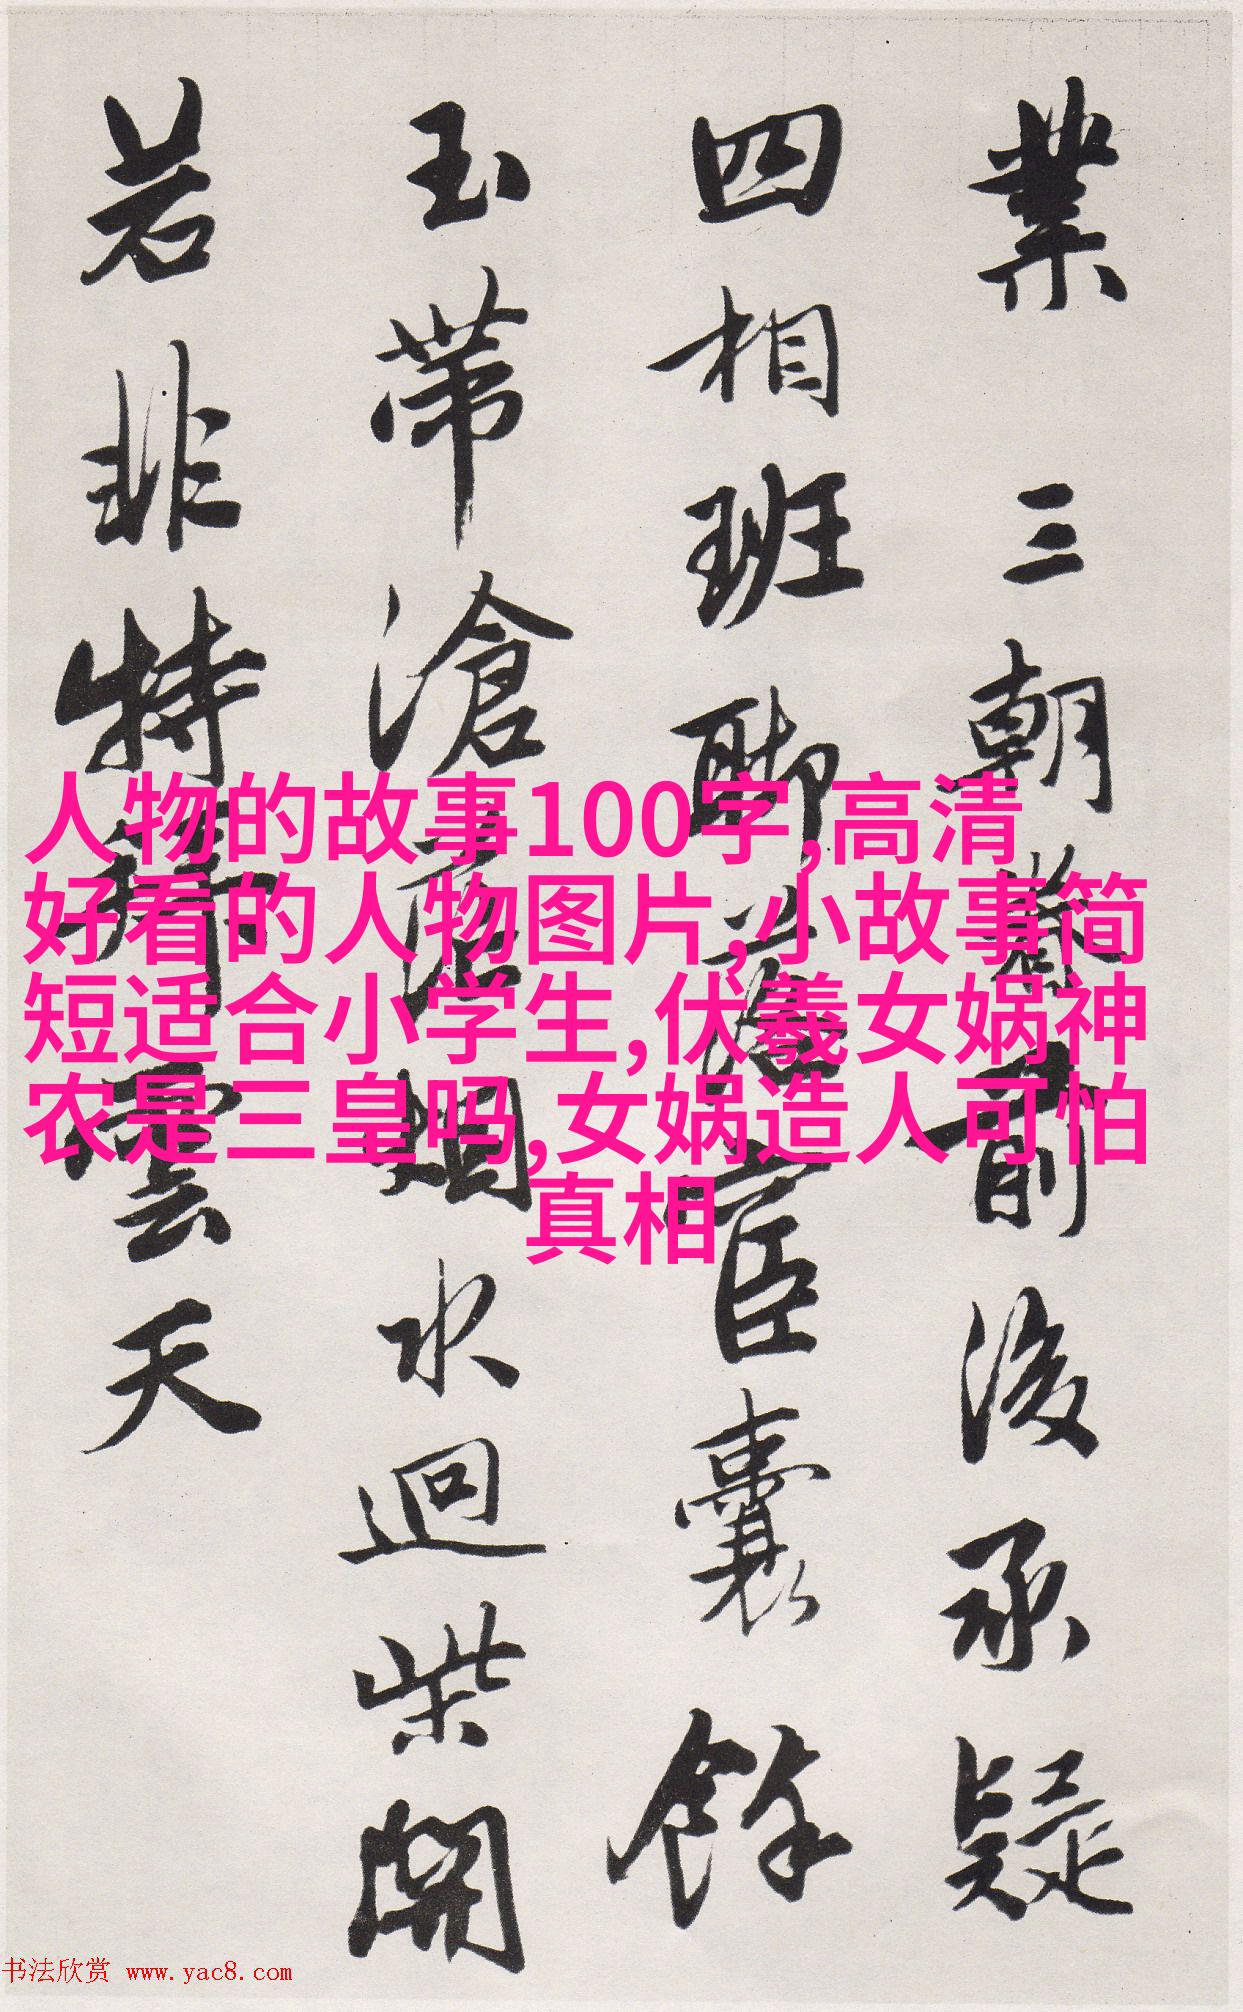 業 三朝前後承疑
四相班聊宦囊餘
玉帶滄烟水迴柴開
若非特拜雲天
人物的故事100字,高清
好看的人物图片,小故事简
短适合小学生,伏羲女娲神
农是三皇吗,女娲造人可怕
真相
书法欣赏 www.yac8.com